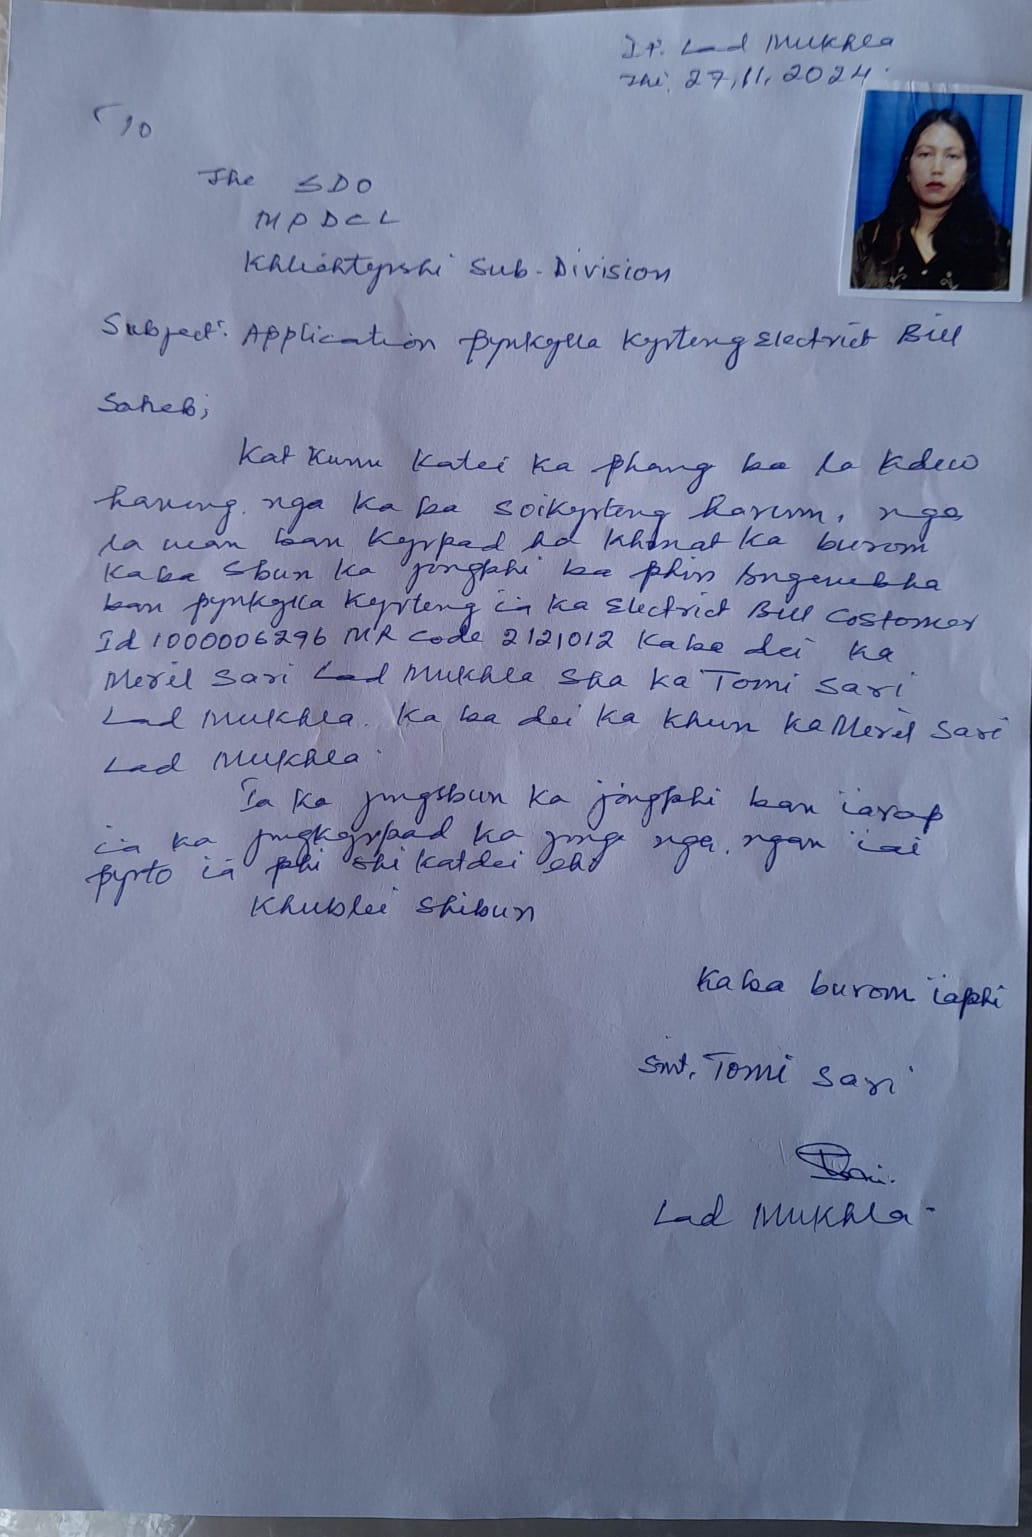 Dt. Lad Mukhla
Thi. 27,11,2024.
To
The SDO
MPDCL
Khliehtyrshi Sub-Division
Subject: Application pynkylla Kyrteng Electrict Bill
Saheb;
Kat Kum Katei ka phang ba la kdew
haneng. nga ka ba soikyrteng harum, nga
la wan ban Kyrpad ha khmat ka burom
kaba Sbun ka jongphi ba phin
ban pynkylla Kyrteng ia ka Electrict Bill Costomer
Id 1000006296 MR Code 2121012 kaba dei ka
Meril Sari Lad Mukhla Sha ka Tomi Sari
Lad Mukhla. Ka ba dei ka khun ka Meril Sari
Lad Mukhla.
Ia ka jingsbun ka jongphi ban ïarap
ia ka jingkyrpad ka jong nga. ngan ïai
pyrto ia phi shi katdei eh.
Khublei Shibun
Kaba burom ïaphi
Smt. Tomi Sari
Lad Mukhla.